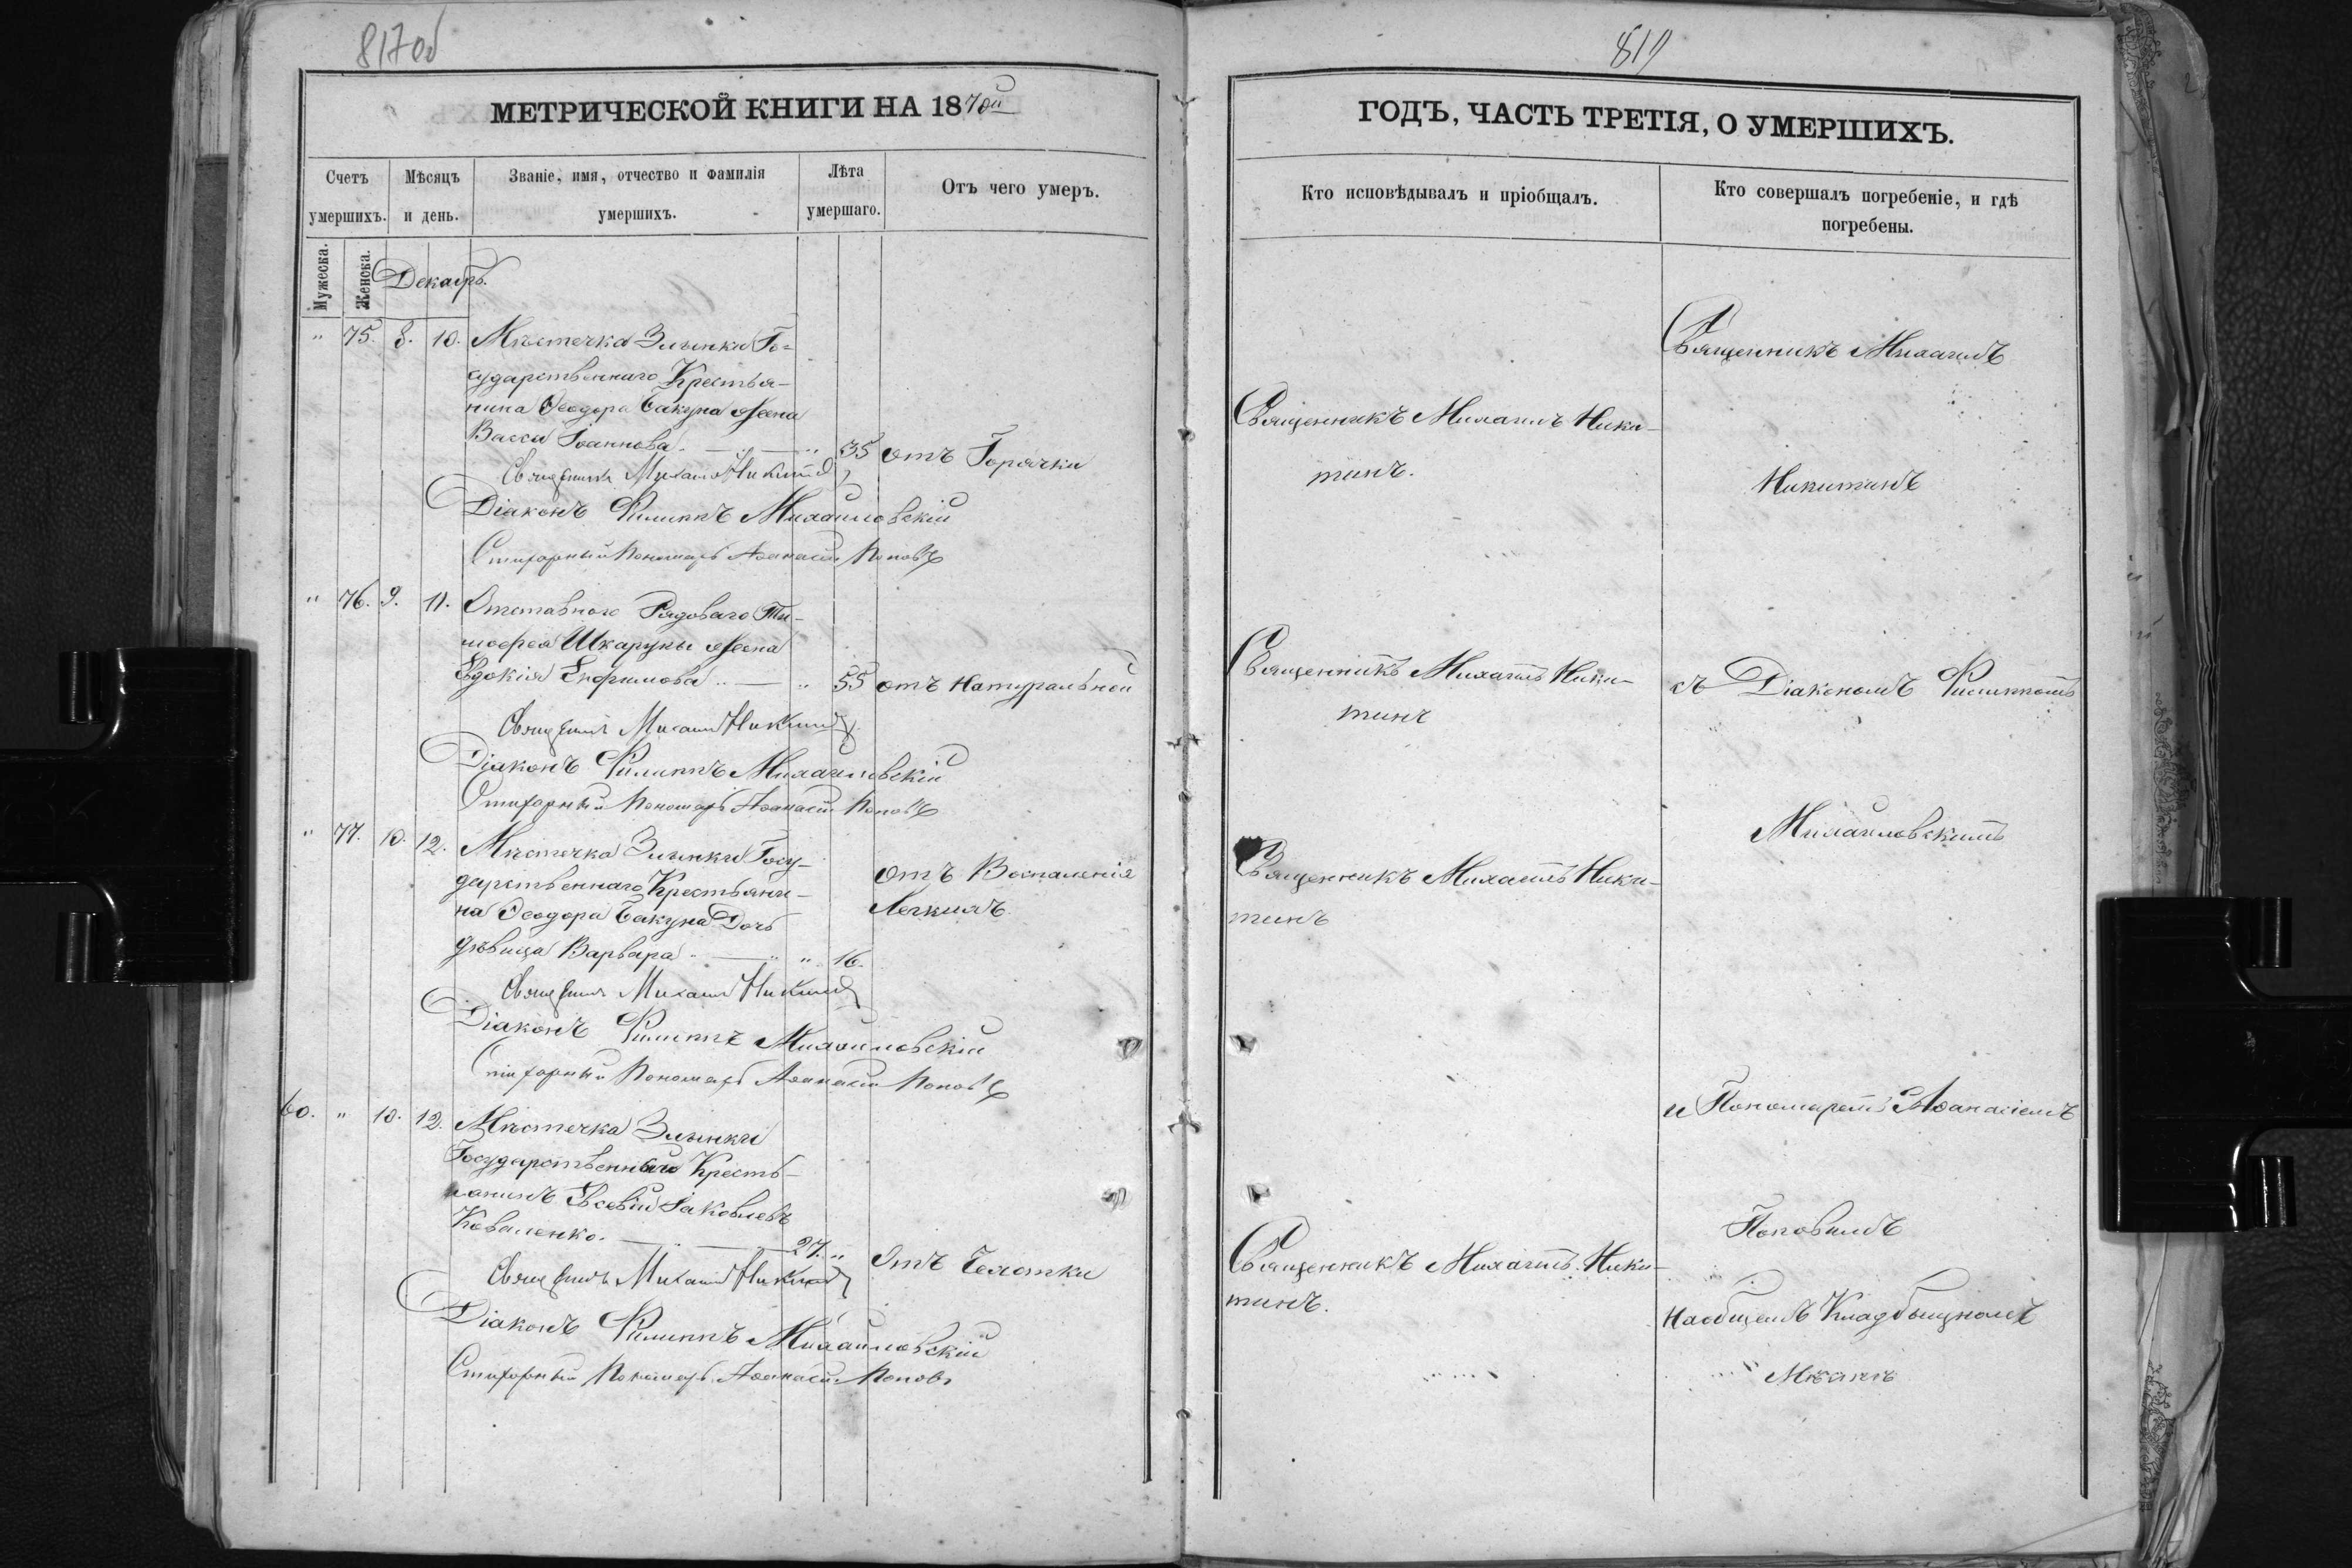 817об
МЕТРИЧЕСКОЙ КНИГИ НА 1870й
Счетъ умершихъ.
Мѣсяцъ и день.
Званіе, имя, отчество и фамилія умершихъ.
Лѣта умершаго.
Отъ чего умеръ.
Мужеска.
Женска.
Декабрь.
" 75. 8. 10. Мѣстечка Злынки Го-
сударственнаго Крестья-
нина Ѳеодора Бакуна жена
Васса Іоаннова. — " 35 отъ Горячки
Священникъ Михаилъ Никитин
Діаконъ Филиппъ Михайловскій
Стихарный Пономарь Аѳанасій Поповъ
" 76. 9. 11. Отставнаго Рядоваго Ти-
моѳея Шкарупы жена
Евдокія Ефимова .. — " 55 отъ Натуральной
Священникъ Михаилъ Никитин
Діаконъ Филиппъ Михайловскій
Стихарный Пономарь Аѳанасій Поповъ
" 77. 10. 12. Мѣстечка Злынки Госу-
дарственнаго Крестьяни-
на Ѳеодора Бакуна Дочь
дѣвица Варвара. — " 16.
отъ Воспаленія
Легкихъ
Священникъ Михаилъ Никитин
Діаконъ Филиппъ Михайловскій
Стихарный Пономарь Аѳанасій Поповъ
60. " 10. 12. Мѣстечка Злынки
Государственный Кресть-
янинъ Евсевій Іаковлевъ
Коваленко. — 27. " Отъ Чахотки
Священникъ Михаилъ Никитин
Діаконъ Филиппъ Михайловскій
Стихарный Пономарь Аѳанасій Поповъ
ГОДЪ, ЧАСТЬ ТРЕТІЯ, О УМЕРШИХЪ.
Кто исповѣдывалъ и пріобщалъ.
Кто совершалъ погребеніе, и гдѣ
погребены.
Священникъ Михаилъ Ники-
тинъ.
Священникъ Михаилъ Ники-
тинъ
Священникъ Михаилъ Ники-
тинъ
Священникъ Михаилъ Ники-
тинъ.
Священникъ Михаилъ
Никитинъ
съ Діакономъ Филиппомъ
Михайловскимъ
и Пономаремъ Аѳанасіемъ
Поповымъ
На общемъ Кладбищномъ
Мѣстѣ